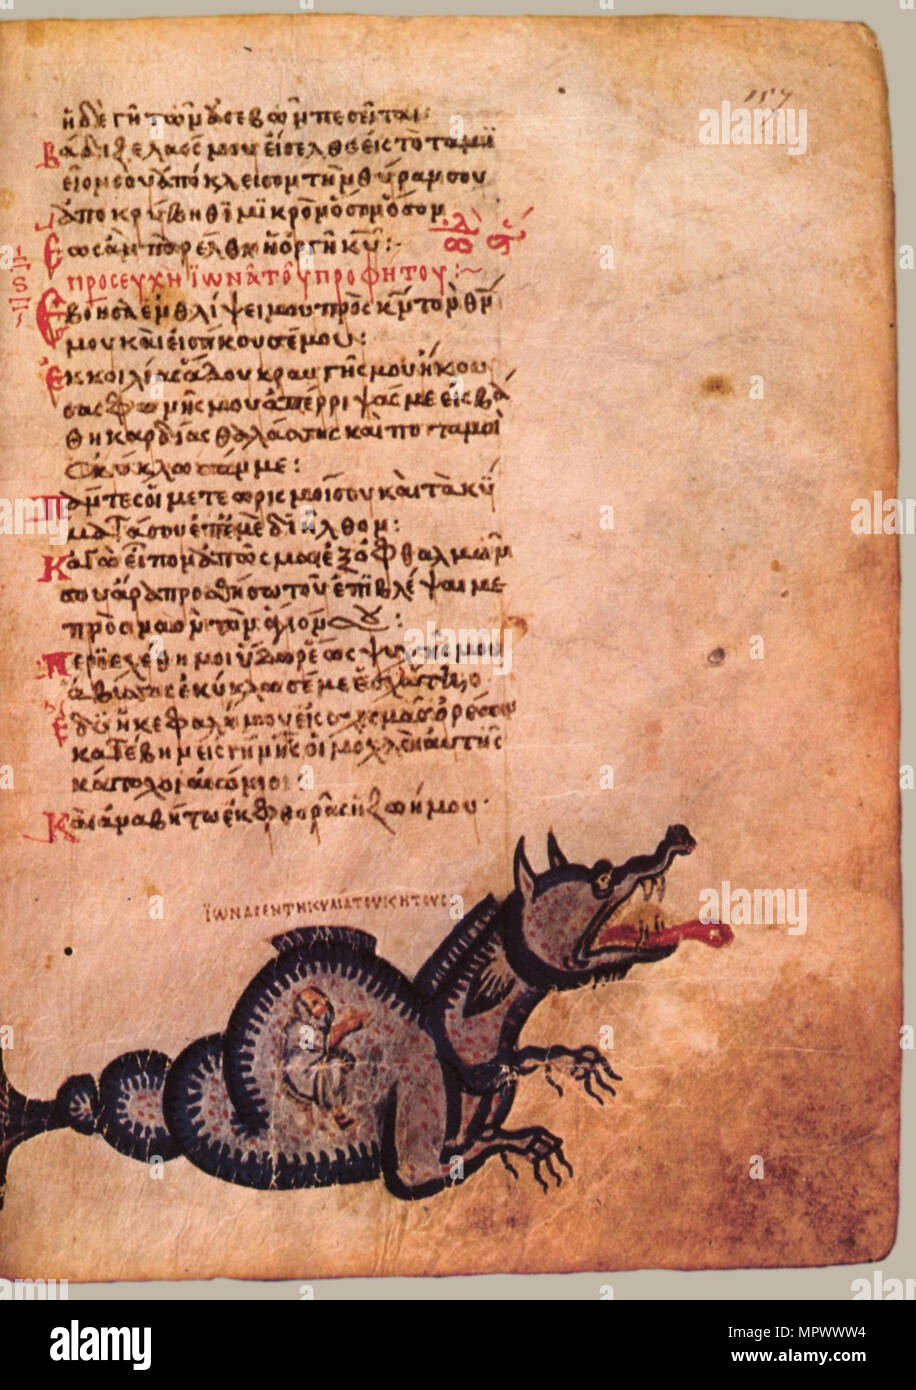 157
ἢ δὲ γῆ τῶν ἀσεβῶν πεσεῖται:
Βάδιζε λαός μου εἴσελθε εἰς τὸ ταμι
εῖόν σου ἀπόκλεισον τὴν θύραν σου
ἀποκρύβηθι μικρὸν ὅσον ὅσον
Ἕως ἂν παρέλθῃ ἡ ὀργὴ κυ:
προσευχη ϊωνᾶ τοῦ προφητου:~
Ἐβόησα ἐν θλίψει μου πρὸς κν τὸν θν
μου καὶ εἰσήκουσέ μου:
Ἐκ κοιλίας ᾅδου κραυγῆς μου ἤκου
σας φωνῆς μου ἀπέρριψάς με εἰς βά
θη καρδίας θαλάσσης καὶ ποταμοὶ
ἐκύκλωσάν με:
Πάντες οἱ μετεωρισμοί σου καὶ τὰ κύ
ματά σου ἐπ' ἐμὲ διῆλθον:
Κἀγὼ εἶπον ἀπῶσμαι ἐξ ὀφθαλμῶν
σου ἆρα προσθήσω τοῦ ἐπιβλέψαι με
πρὸς ναὸν τὸν ἅγιόν σου:
Περιεχύθη μοι ὕδωρ ἕως ψυχῆς μου
ἄβυσσος ἐκύκλωσέ με ἐσχάτη
Ἔδυ ἡ κεφαλή μου εἰς σχισμὰς ὀρέων
κατέβην εἰς γῆν ἧς οἱ μοχλοὶ αὐτῆς
κάτοχοι αἰώνιοι:
Καὶ ἀναβήτω ἐκ φθορᾶς ἡ ζωή μου·
ϊωνας εν τη κυλια του κητους
alamy
Image ID: MPWWW4
www.alamy.com